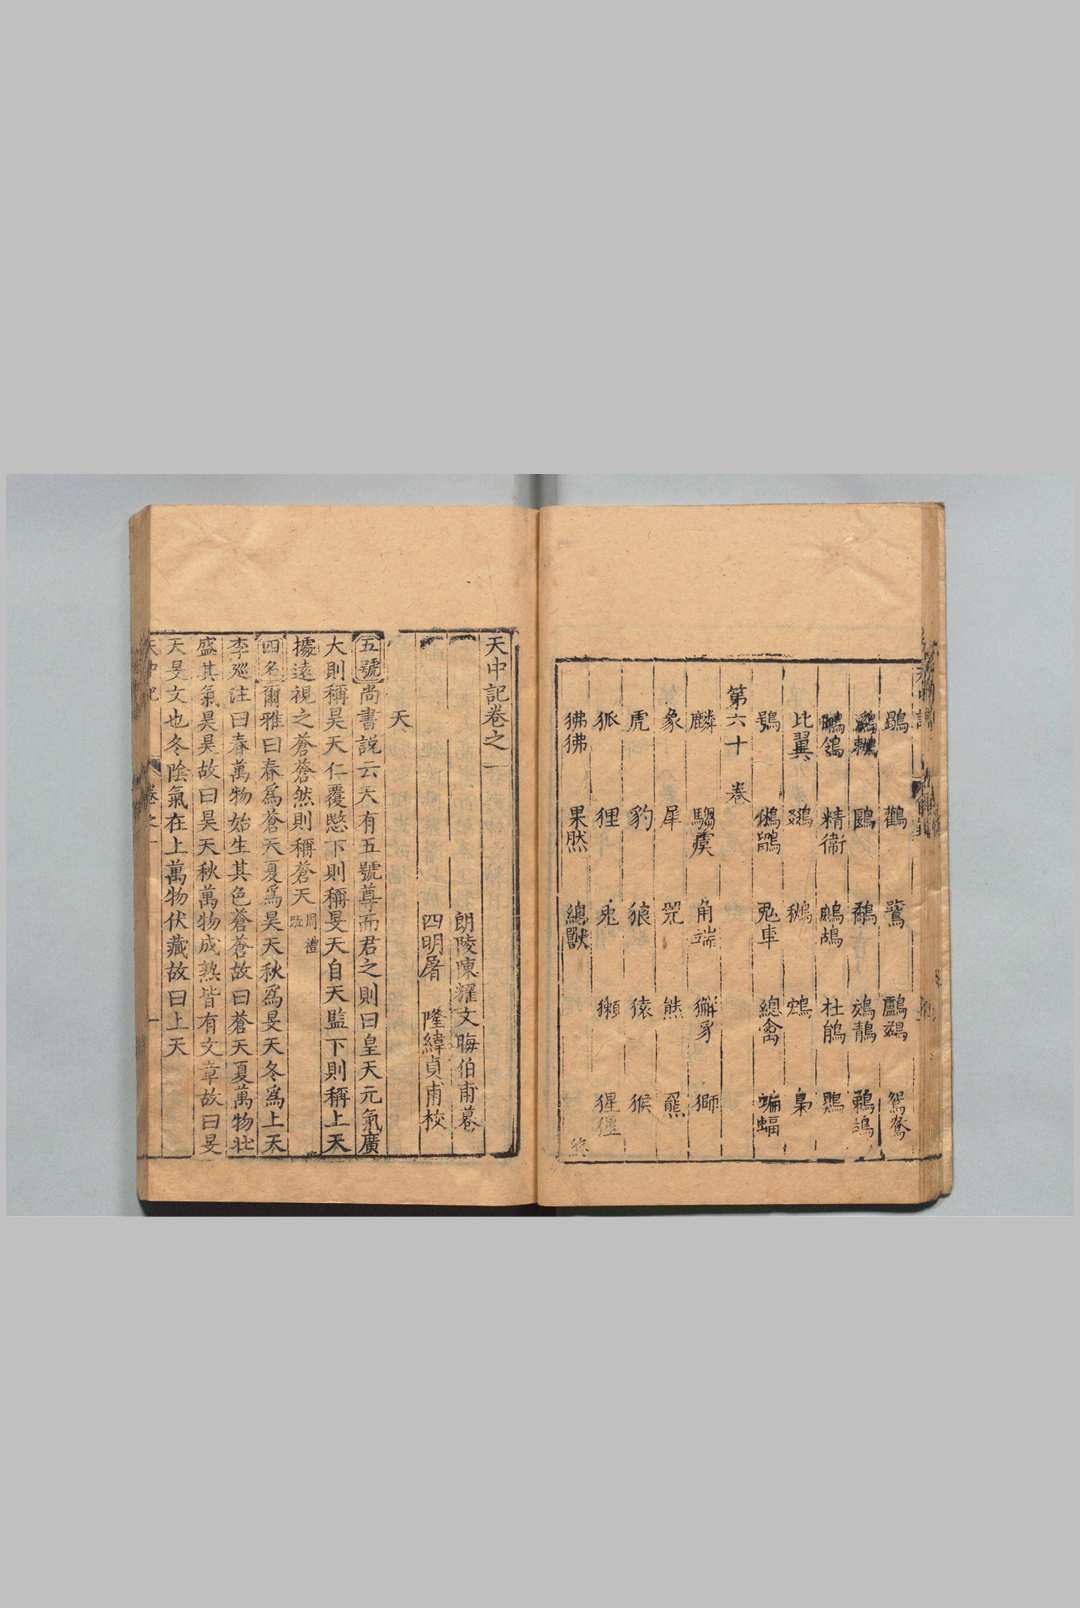 鶂 鸛 鷺 鸕鷀 鴛鴦
鸂鷘 鷗 鷸 鵁鶄 鵜鴣
鶺鴒 精衛 鷓鴣 杜鵑 鵙
比翼 鵶 鵂 鴆 梟
鶚 鵩 鬼車 總禽 蝙蝠
第六十卷
麟 騶虞 角端 獬豸 獅
象 犀 兕 熊 羆
虎 豹 狼 猿 猴
狐 狸 兎 獺 猩猩
狒狒 果然 總獸
終
天中記卷之一
朗陵陳耀文晦伯甫纂
四明屠 隆緯貞甫校
天
五號尚書説云天有五號尊而君之則曰皇天元氣廣
大則稱昊天仁覆愍下則稱旻天自天監下則稱上天
據遠視之蒼蒼然則稱蒼天周禮疏
四名爾雅曰春爲蒼天夏爲昊天秋爲旻天冬爲上天
李廵注曰春萬物始生其色蒼蒼故曰蒼天夏萬物壮
盛其氣昊昊故曰昊天秋萬物成熟皆有文章故曰旻
天旻文也冬陰氣在上萬物伏藏故曰上天
天中記 卷之一 一